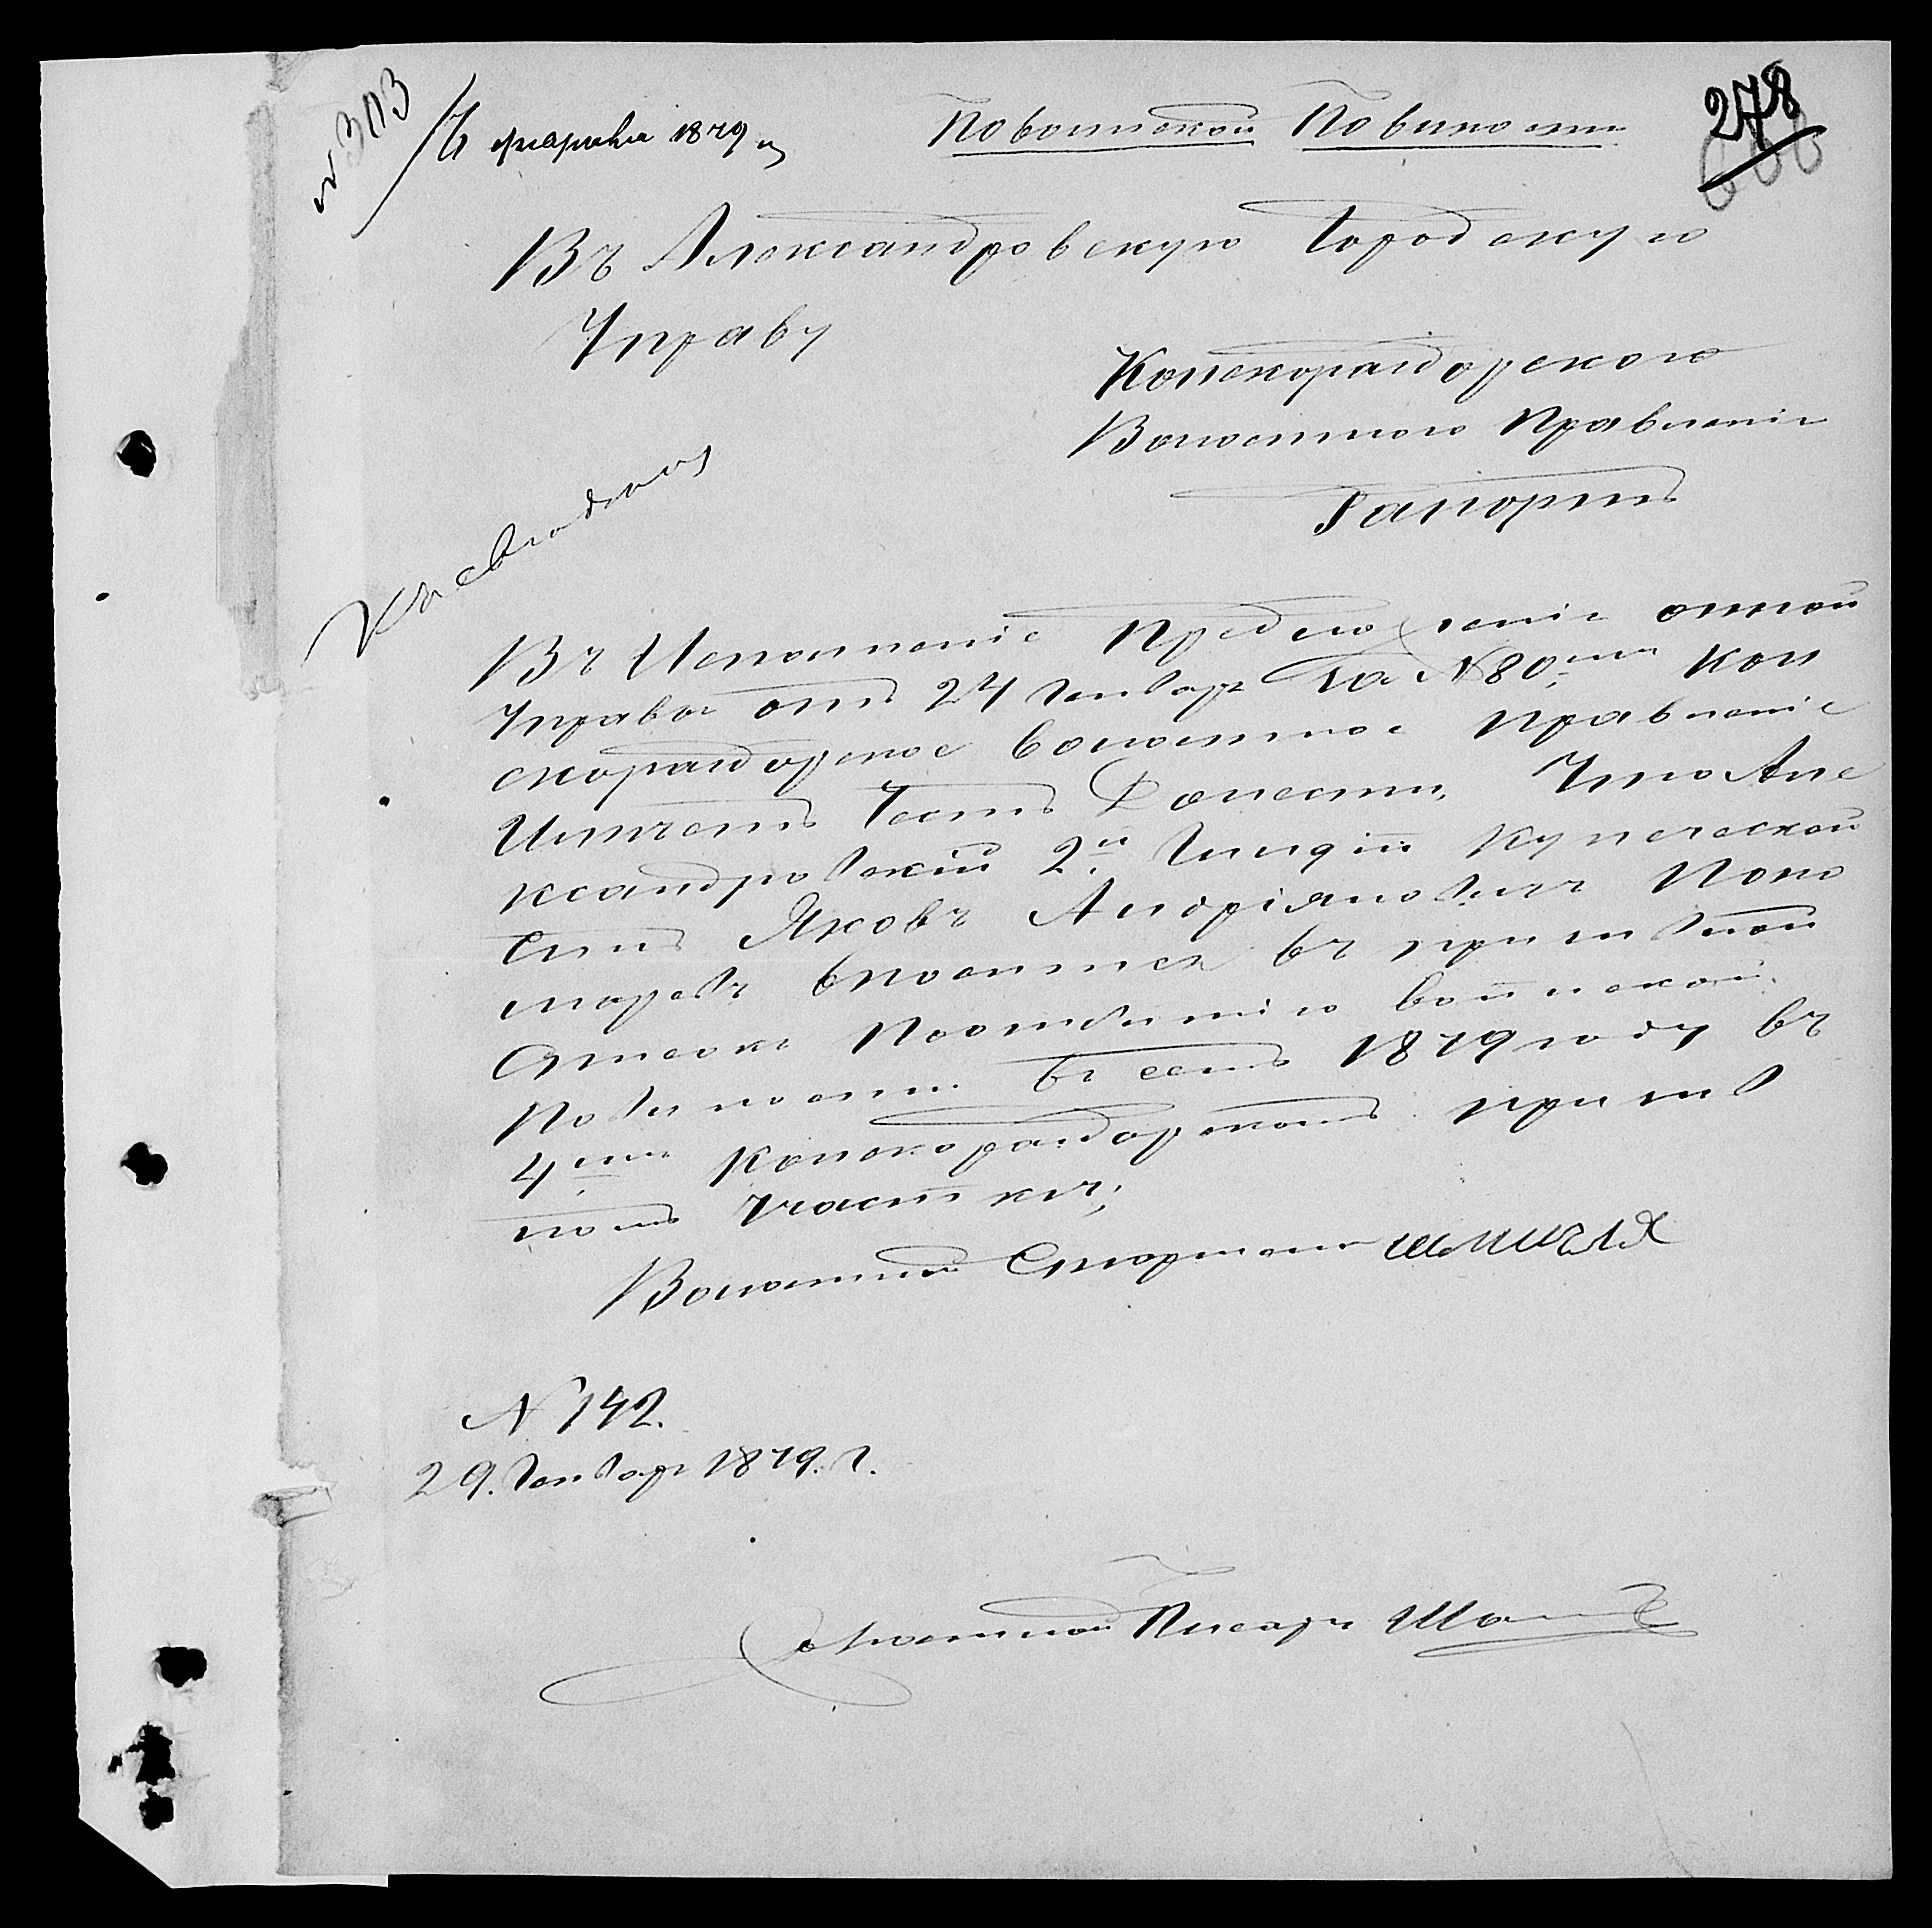 № 303
6 февраля 1879 г
По воинской Повинности
278
Въ Александровскую Городскую
Управу
Конскораздорского
Волостного Правленія
Рапортъ
Къ свѣденію
Въ Исполненіе Предложенія оттой
Управы отъ 24 Генваря за № 80мъ Кон
скораздорское волостное Правленіе
Имѣетъ Честь Донести, Что Але
ксандровскій 2й Гильдіи Купеческой
Сынъ Яковъ Андріяновичъ Поно
маревъ вноситса въ призывной
Списокъ Поотбытію воинской
Повинности въ семъ 1879 году въ
4мъ Конскораздорскомъ призыв
номъ Участкѣ;
Волостной Старшина
№ 142.
29. Генваря 1879. г.
Волостной Писарь